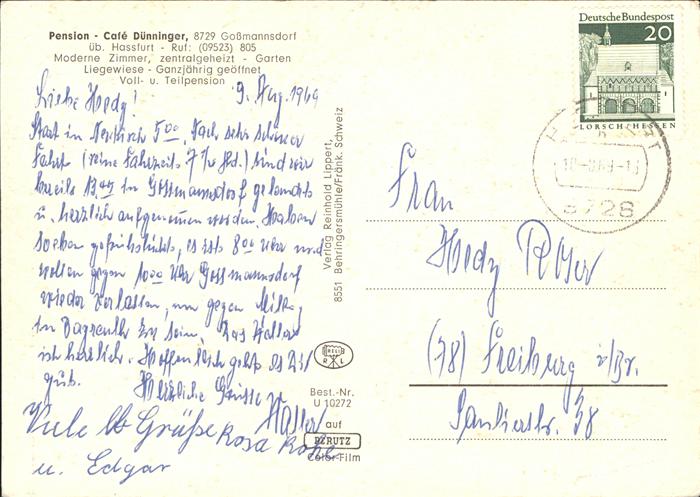 Pension - Café Dünninger, 8729 Goßmannsdorf
üb. Hassfurt - Ruf: (09523) 805
Moderne Zimmer, zentralgeheizt - Garten
Liegewiese - Ganzjährig geöffnet
Voll- u. Teilpension
9. Aug. 1969
Liebe Hedy!
Start in Neukirch 5⁰⁰. Nach sehr schöner
Fahrt (reine Fahrzeit 7 Std.) sind wir
bereits 13⁴⁵ in Gossmannsdorf gelandet
u. herzlich aufgenommen worden. Haben
soeben gefrühstückt, es ist 8⁰⁰ Uhr und
wollen gegen 10⁰⁰ Uhr Gossmannsdorf
wieder verlassen, um gegen Mittag
in Bayreuth zu sein. Das Wetter
ist herrlich. Hoffentlich geht es Dir
gut. Herzliche Grüsse
Viele Grüße Rosa
u. Edgar
Verlag Reinhold Lippert,
8551 Behringersmühle/Fränk. Schweiz
REL
R L
Best.-Nr.
U 10272
auf
PERUTZ
Color-Film
Deutsche Bundespost
20
LORSCH/HESSEN
8728
Frau
Hedy
(78) Freiburg i/Br.
38